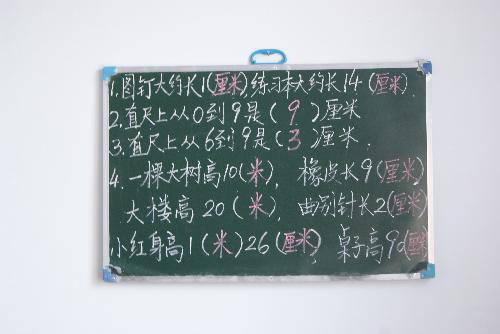 1.图钉大约长1(厘米),练习本大约长14(厘米).
2.直尺上从0到9是(9)厘米
3.直尺上从6到9是(3)厘米.
4.一棵大树高10(米), 橡皮长9(厘米)
大楼高20(米), 曲别针长2(厘米)
小红身高1(米)26(厘米) 桌子高90(厘米)